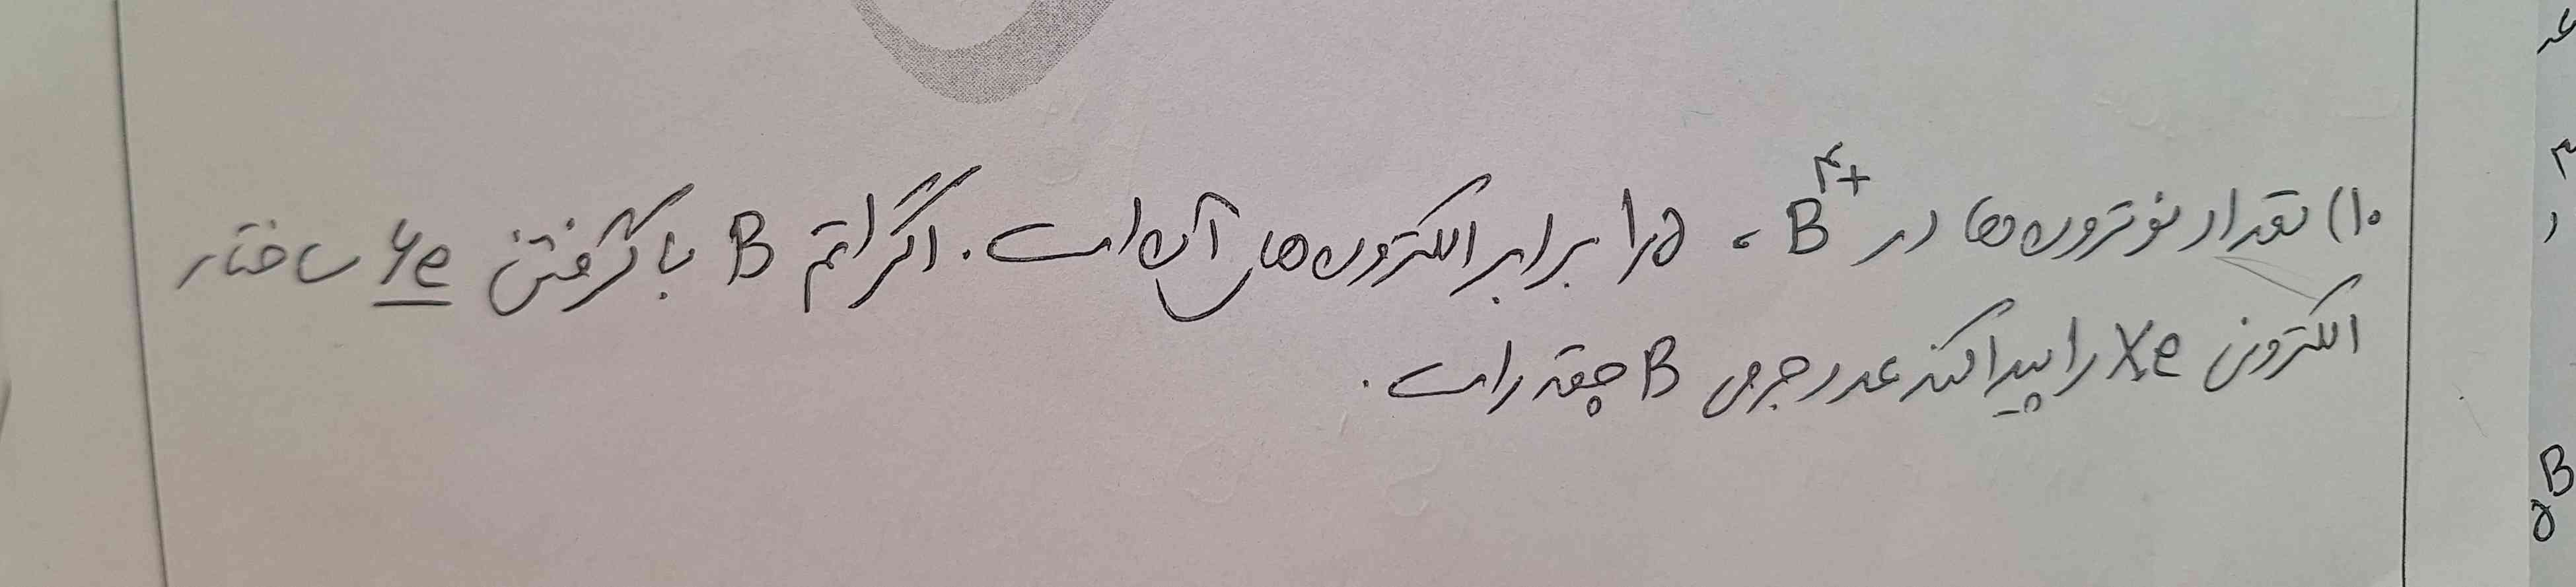 ۱۰) تعداد نوترون‌ها در B⁴⁺، ۱٫۵ برابر الکترون‌های آن است. اگر اتم B با گرفتن ۲e ساختار
الکترون Xe را پیدا کند عدد جرمی B چقدر است.
B
۵